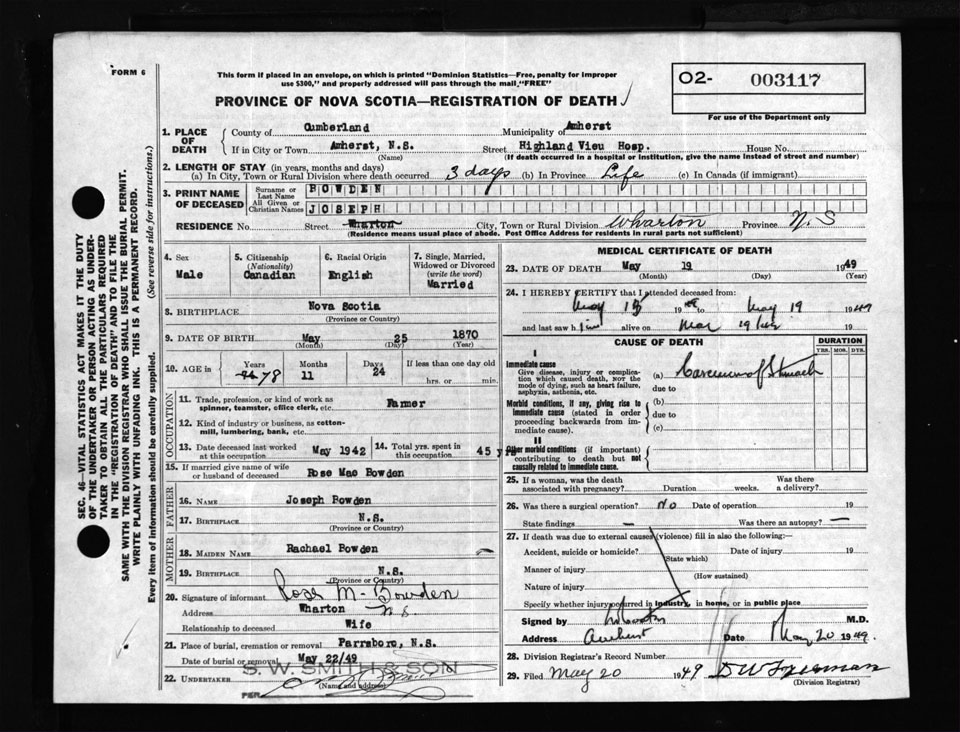 FORM 6
This form if placed in an envelope, on which is printed "Dominion Statistics—Free, penalty for improper
use $300," and properly addressed will pass through the mail, "FREE"
PROVINCE OF NOVA SCOTIA—REGISTRATION OF DEATH
O2- 003117
For use of the Department only
1. PLACE OF DEATH
County of Cumberland Municipality of Amherst
If in City or Town Amherst, N.S. Street Highland View Hosp. House No.
(Name) (If death occurred in a hospital or institution, give the name instead of street and number)
2. LENGTH OF STAY (in years, months and days)
(a) In City, Town or Rural Division where death occurred 3 days (b) In Province Life (c) In Canada (if immigrant)
3. PRINT NAME OF DECEASED
Surname or Last Name BOWDEN
All Given or Christian Names JOSEPH
RESIDENCE No. Street Wharton City, Town or Rural Division Wharton Province N.S
(Residence means usual place of abode. Post Office Address for residents in rural parts not sufficient)
4. Sex Male
5. Citizenship (Nationality) Canadian
6. Racial Origin English
7. Single, Married, Widowed or Divorced (write the word) Married
8. BIRTHPLACE Nova Scotia
(Province or Country)
9. DATE OF BIRTH May 25 1870
(Month) (Day) (Year)
10. AGE in Years 78 Months 11 Days 24 If less than one day old
hrs. or min.
OCCUPATION
11. Trade, profession, or kind of work as spinner, teamster, office clerk, etc. Farmer
12. Kind of industry or business, as cotton-mill, lumbering, bank, etc.
13. Date deceased last worked at this occupation May 1942
14. Total yrs. spent in this occupation 45 yrs
15. If married give name of wife or husband of deceased Rose Mae Bowden
FATHER
16. NAME Joseph Bowden
17. BIRTHPLACE N.S.
(Province or Country)
MOTHER
18. MAIDEN NAME Rachael Bowden
19. BIRTHPLACE N.S.
(Province or Country)
20. Signature of informant Rose M. Bowden
Address Wharton N S
Relationship to deceased Wife
21. Place of burial, cremation or removal Parrsboro, N.S.
Date of burial or removal May 22/49
22. UNDERTAKER S. W. SMITH & SON
(Name and address)
PER
MEDICAL CERTIFICATE OF DEATH
23. DATE OF DEATH May 19 1949
(Month) (Day) (Year)
24. I HEREBY CERTIFY that I attended deceased from:
May 19 to May 19 1949
and last saw him alive on 19
CAUSE OF DEATH
DURATION
YRS. MOS. DYS.
I
Immediate cause
Give disease, injury or complication which caused death, NOT the mode of dying, such as heart failure, asphyxia, asthenia, etc.
(a) Carcinoma of Stomach
due to
Morbid conditions, if any, giving rise to immediate cause (stated in order proceeding backwards from immediate cause).
(b)
due to
(c)
II
Other morbid conditions (if important) contributing to death but not causally related to immediate cause.
25. If a woman, was the death associated with pregnancy? Duration weeks. Was there a delivery?
26. Was there a surgical operation? No Date of operation 19
State findings — Was there an autopsy? —
27. If death was due to external causes (violence) fill in also the following:—
Accident, suicide or homicide? Date of injury 19
(State which)
Manner of injury
(How sustained)
Nature of injury
Specify whether injury occurred in industry, in home, or in public place
Signed by M.D.
Address Amherst Date May 20 1949.
28. Division Registrar's Record Number
29. Filed May 20 1949
(Division Registrar)
SEC. 46—VITAL STATISTICS ACT MAKES IT THE DUTY
OF THE UNDERTAKER OR PERSON ACTING AS UNDER-
TAKER TO OBTAIN ALL THE PARTICULARS REQUIRED
IN THE "REGISTRATION OF DEATH" AND TO FILE THE
SAME WITH THE DIVISION REGISTRAR WHO SHALL ISSUE THE BURIAL PERMIT.
WRITE PLAINLY WITH UNFADING INK. THIS IS A PERMANENT RECORD.
Every item of information should be carefully supplied. (See reverse side for instructions.)